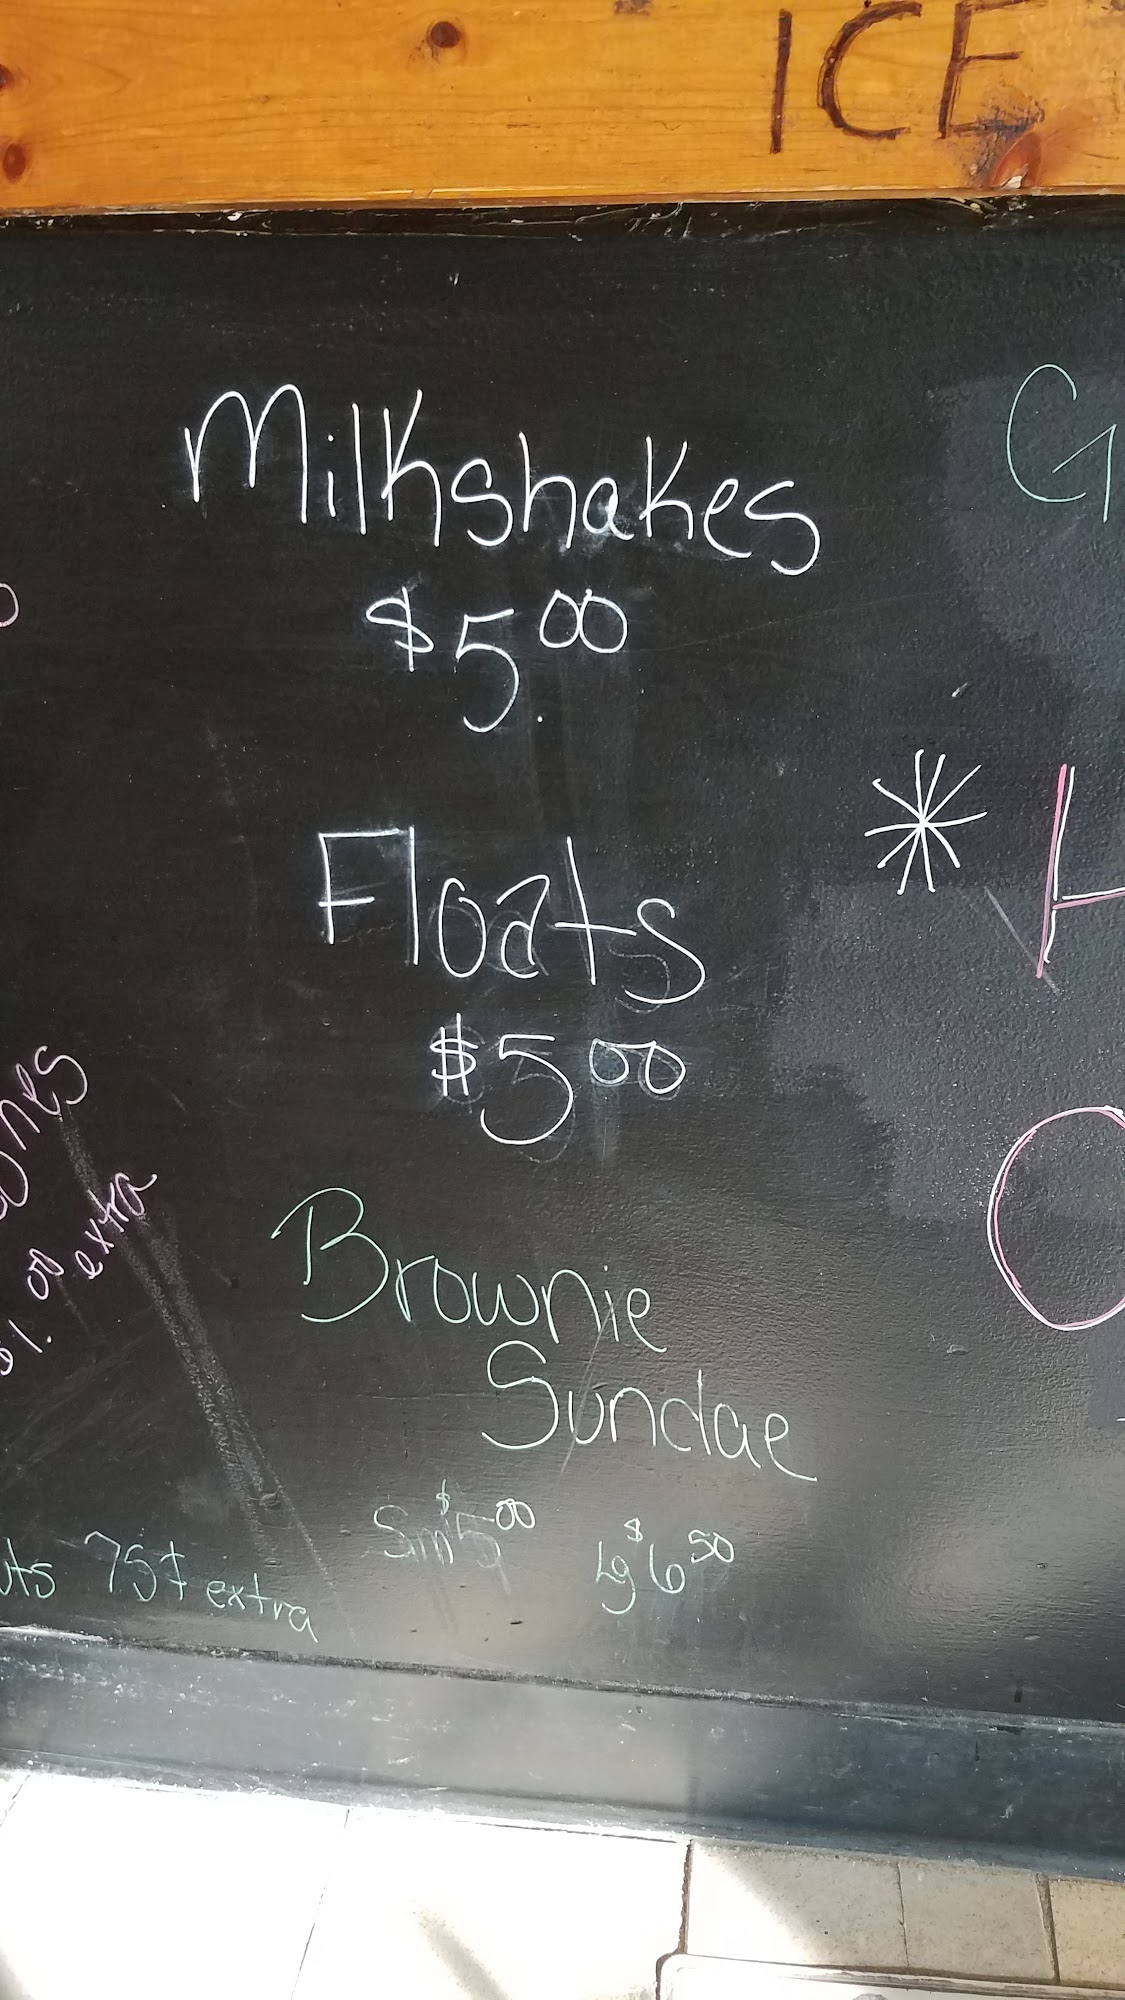 ICE
Milkshakes
$5.00
Floats
$5.00
Brownie
Sundae
Sm $5.00 Lg $6.50
$1.00 extra
75¢ extra